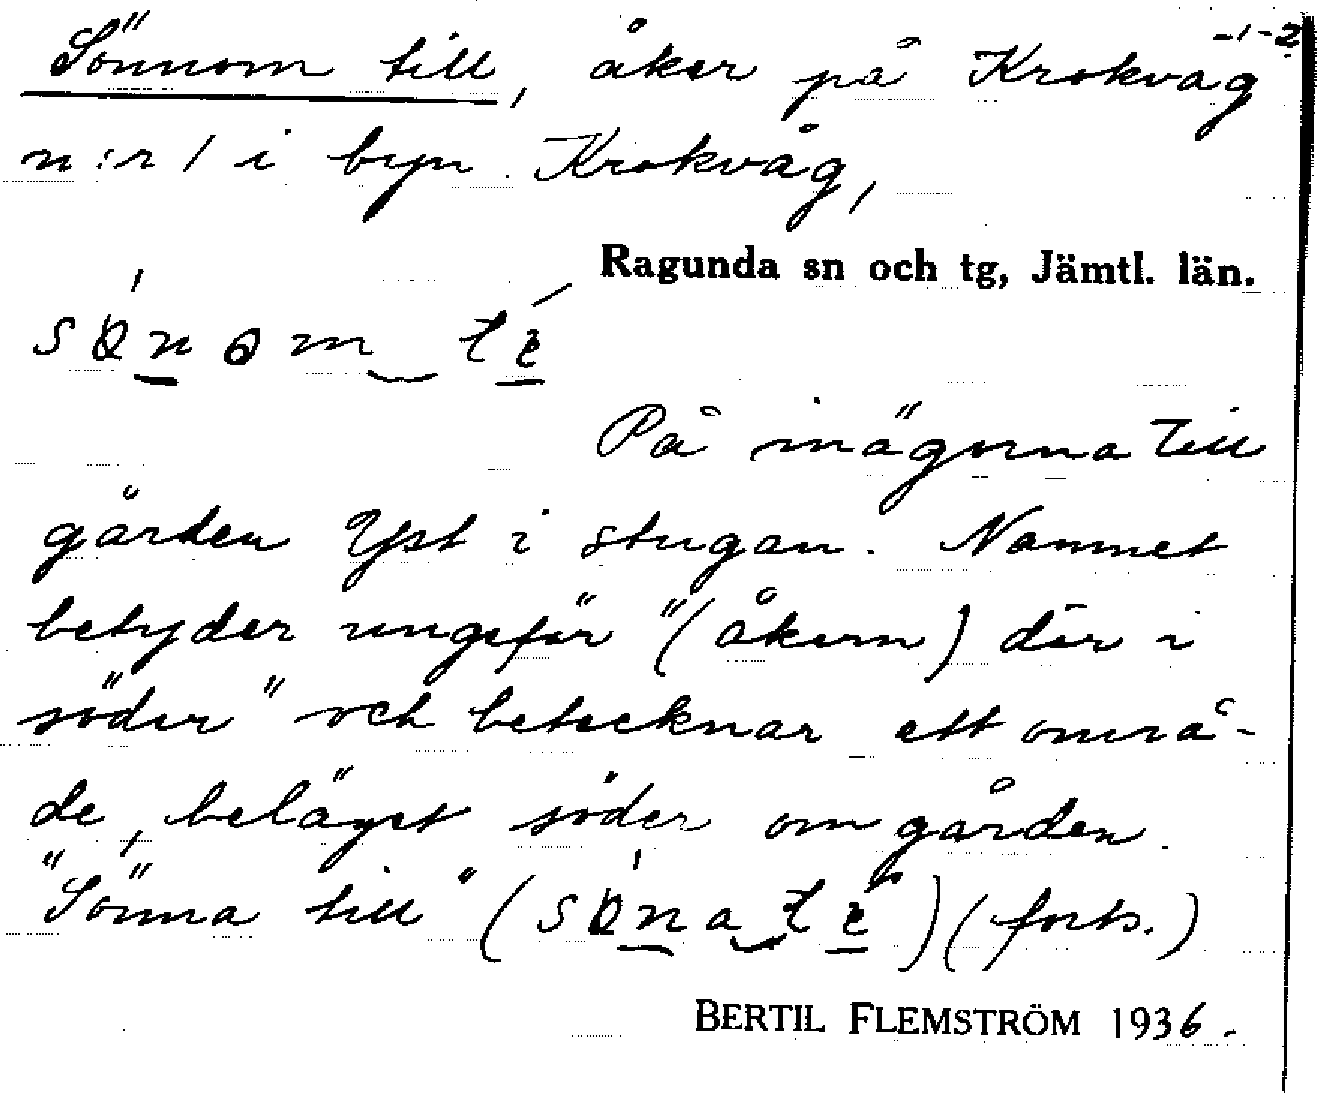 Sönnom till, åker på Krokvåg -1-2
n:r 1 i byn Krokvåg,
Ragunda sn och tg, Jämtl. län.
På inägorna till
gården Yst i stugan. Namnet
betyder ungefär "(åkern) där i
söder" och betecknar ett områ-
de, beläget söder om gården.
"Sönna till" ( ) (forts.)
BERTIL FLEMSTRÖM 1936.